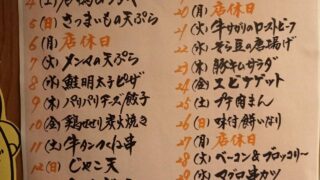 5 (日) さつまいもの天ぷら
6 (月) 店休日
7 (火) メンマの天ぷら
8 (水) 鮭明太子ピザ
9 (木) パリパリチーズ餃子
10 (金) 鶏せせり炭火焼き
11 (土) 牛タンつくね串
12 (日) じゃこ天
20 (月) 店休日
21 (火) 牛サガリのローストビーフ
22 (水) そら豆の唐揚げ
23 (木) 豚キムサラダ
24 (金) エビナゲット
25 (土) プチ肉まん
26 (日) 味付飾いなり
27 (月) 店休日
28 (火) ベーコン&ブロッコリー
29 (水) マグロ串カツ